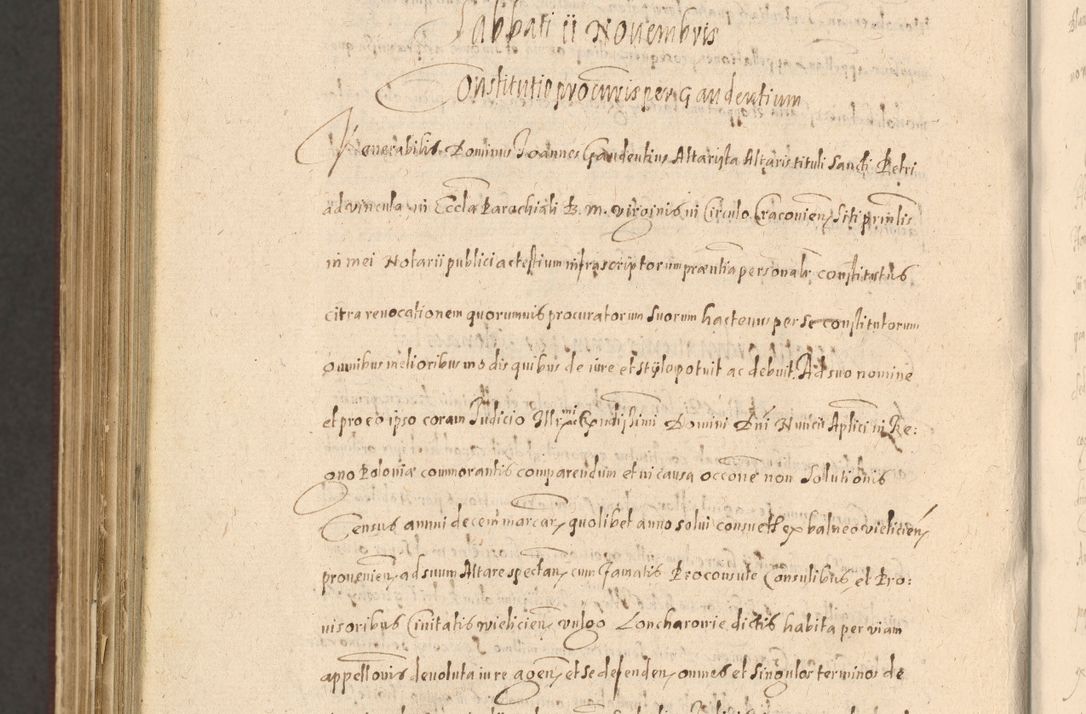 Sabbati ii Nouembris
Constitutio procuris per Gaudentium
Venerabilis Dominus Joannes Gaudentius Altarista Altaris tituli Sancti Petri
ad vincula in Eccla Parachiali B. M. virginis in Circulo Cracouien, siti prinlis
in mei Notarii publici ac testium infrascriptorum praentia personalr constitutus
citra reuocationem quorumuis procuratorum suorum hactenus per se constitutorum
omnibus melioribus modis quibus de iure et stylo potuit ac debuit. Ad suo nomine
et pro eo ipso coram Judicio Illrmi Domini Dni Nuncii Aplici in Re:
gno Poloniæ commorantis comparendum et in causa occone non Solutionis
Census annui decem marcar, quolibet anno solui consueti ex balneo vielicien,
prouenien, ad suum Altare spectan, cum famatis Proconsule Consulibus et Pro:
uisoribus Ciuitatis vielicien, vulgo Loncharowie dictis habita per viam
appellonis deuoluta iure agen, et se defenden, omnes et singulos terminos de